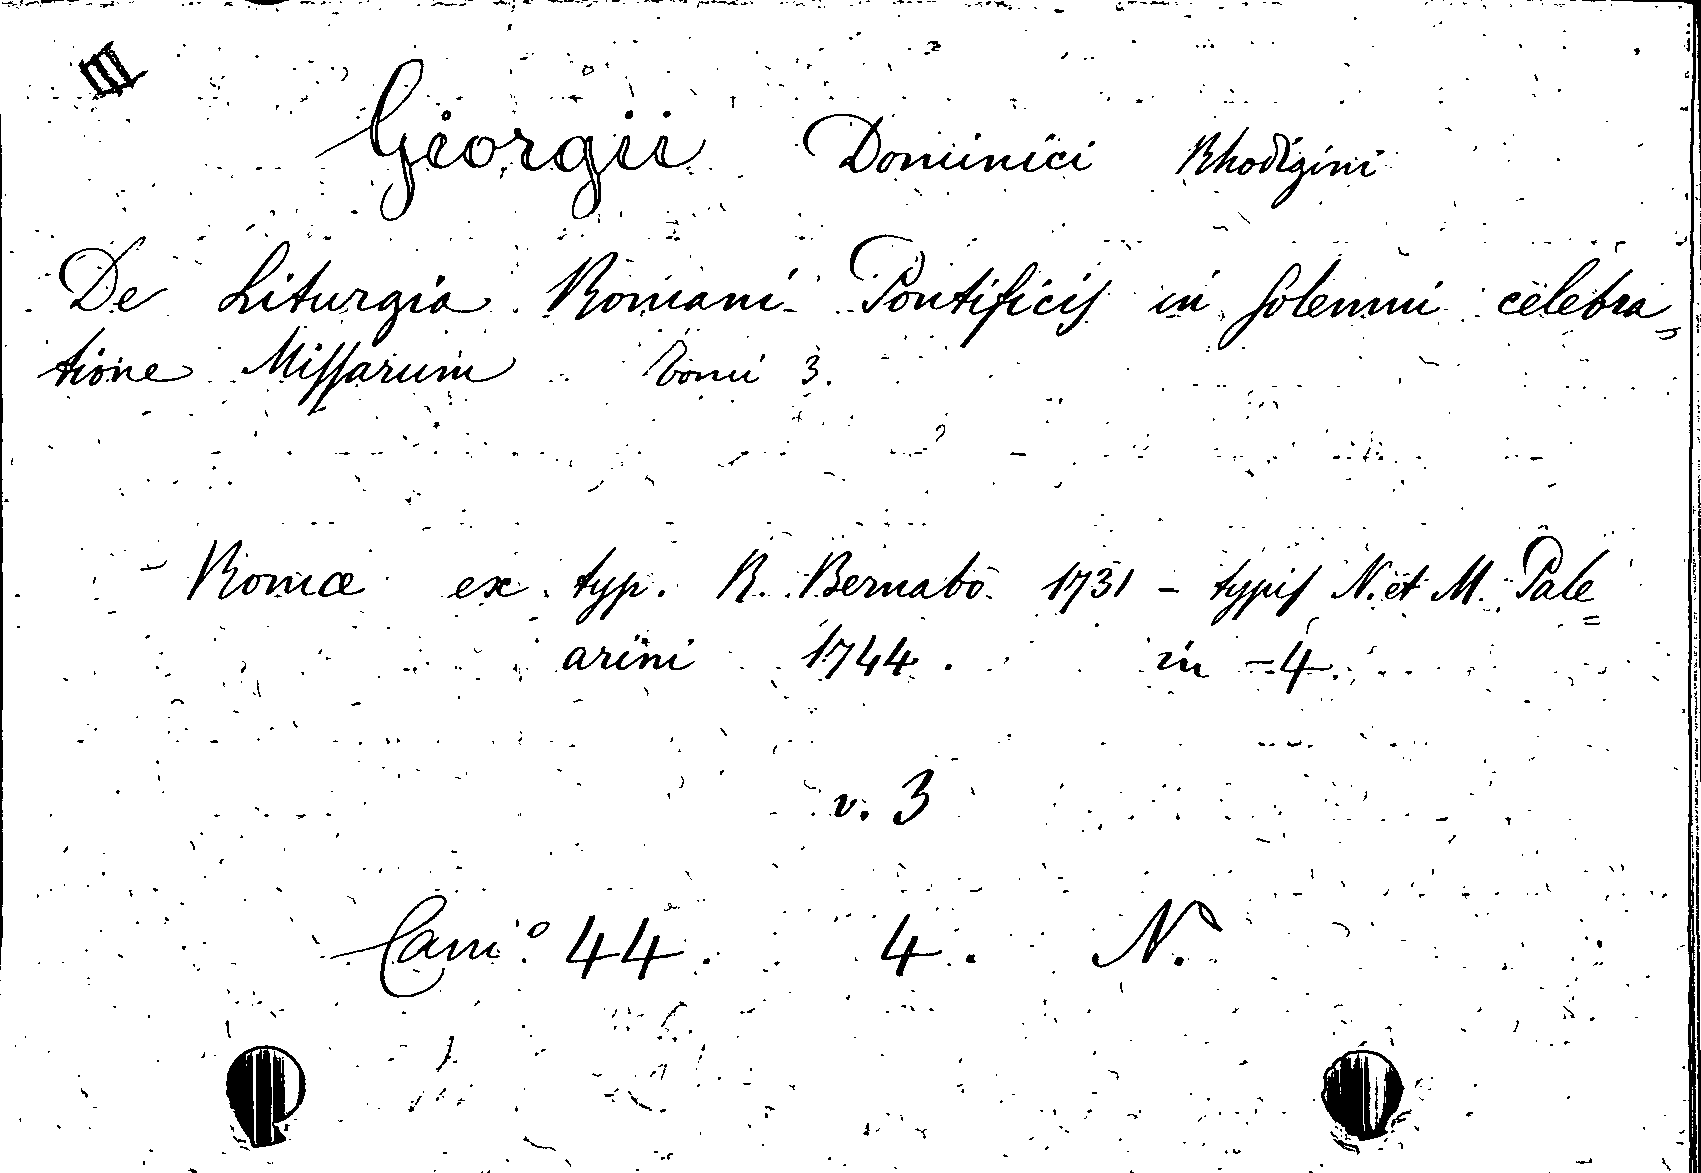 III
Georgii Dominici Rhodigini
De Liturgia Romani Pontificis in solemni celebra=
tione Missarum Tomi 3.
- Romæ ex typ. R. Bernabò 1731 - typis N. et M. Pale=
arini 1744. in -4.
v. 3
Cam.º 44. 4. N.